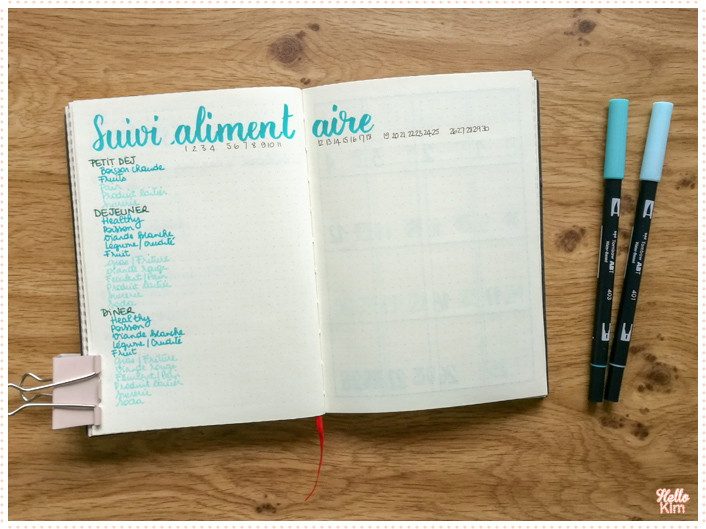 Suivi alimentaire
1 2 3 4 5 6 7 8 9 10 11 12 13 14 15 16 17 18 19 20 21 22 23 24 25 26 27 28 29 30
PETIT DEJ
Boisson chaude
Fruits
Pain
Produit laitier
Sucrerie
DEJEUNER
Healthy
Poisson
Viande blanche
Légume / Crudité
Fruit
Gras / Friture
Viande rouge
Féculent / Pain
Produit laitier
Sucrerie
Soda
DINER
Healthy
Poisson
Viande blanche
Légume / Crudité
Fruit
Gras / Friture
Viande rouge
Féculent / Pain
Produit laitier
Sucrerie
Soda
Tombow ABT
403
Tombow ABT
401
Hello
Kim